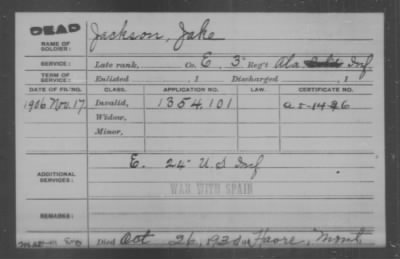 DEAD
NAME OF SOLDIER: Jackson, Jake
SERVICE: Late rank, Co. E, 3" Reg't Ala. Inf
TERM OF SERVICE: Enlisted , 1 Discharged , 1
DATE OF FILING. CLASS. APPLICATION NO. LAW. CERTIFICATE NO.
1906 Nov. 17 Invalid, 1354,101
Widow,
Minor,
ADDITIONAL SERVICES: E. 24" U.S Inf
WAR WITH SPAIN
REMARKS:
Died Oct 26, in Havre, Mont